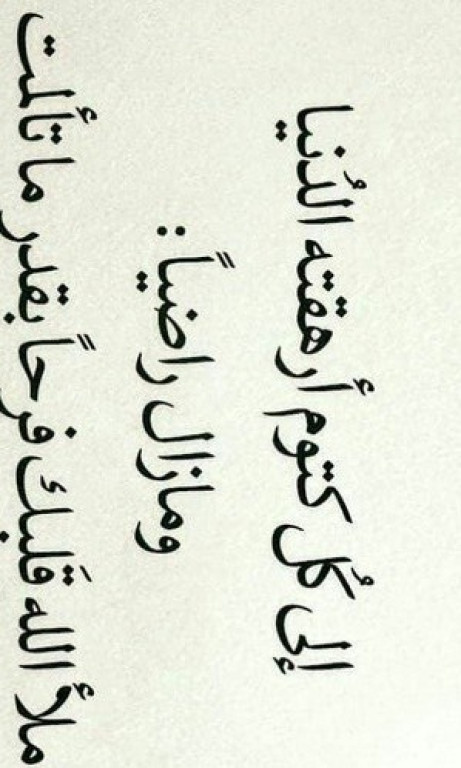 إلى كُل كتوم أرهقته الدُنيا
ومازال راضياً :
ملأ الله قلبَك فرحاً بقدر ما تألمت